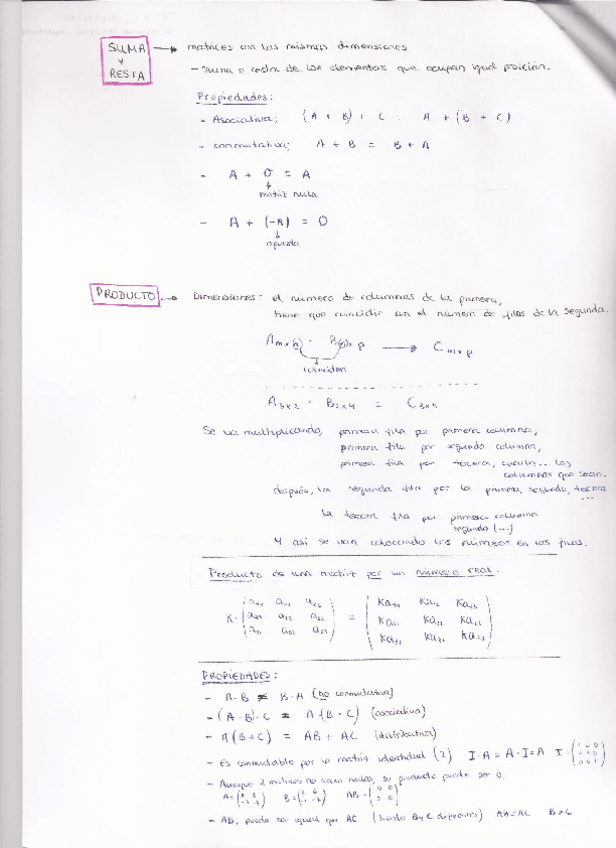 SUMA Y RESTA → matrices con las mismas dimensiones
- suma o resta de los elementos que ocupan igual posición.
Propiedades:
- Asociativa; (A + B) + C A + (B + C)
- conmutativa; A + B = B + A
- A + O = A
matriz nula
- A + (-A) = O
opuesta
PRODUCTO → Dimensiones: el número de columnas de la primera,
tiene que coincidir con el número de filas de la segunda.
Amxn · Bnxp → Cmxp
coinciden
A3x2 · B2x4 = C3x4
Se va multiplicando, primera fila por primera columna,
primera fila por segunda columna,
primera fila por tercera, ... las
columnas que sean.
después, la segunda fila por la primera, segunda, tercera
...
La tercera fila por primera columna
segunda (...)
Y así se van colocando los números en las filas.
Producto de una matriz por un número real.
K · =
PROPIEDADES:
- A·B ≠ B·A (no conmutativa)
- (A·B)·C = A·(B·C) (asociativa)
- A(B+C) = AB + AC (distributiva)
- Es conmutable por la matriz identidad (I) I·A = A·I = A I =
- Aunque 2 matrices no sean nulas, su producto puede ser 0.
A = B = AB =
- AB, puede ser igual que AC (siendo B y C diferentes) AB = AC B ≠ C